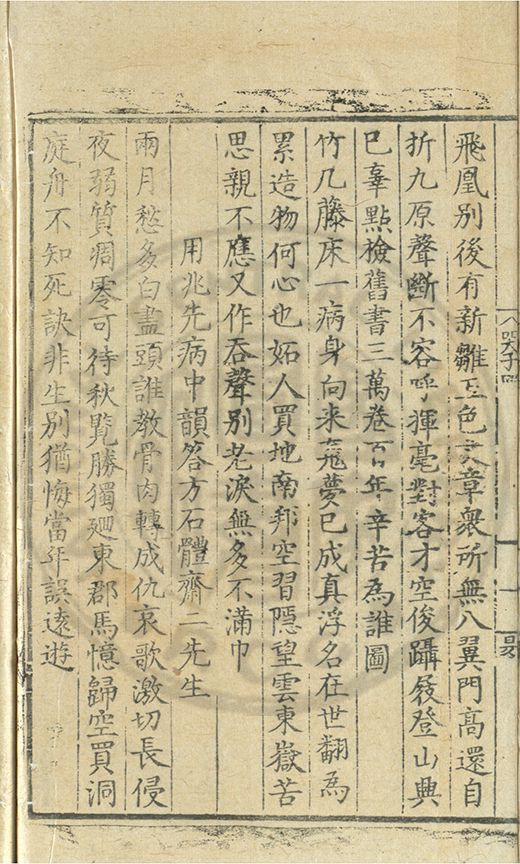 飛凰別後有新雛五色文章衆所無八翼門高還自
折九原聲斷不容呼揮毫對客才空俊躡屐登山興
已辜點檢舊書三萬卷百年辛苦為誰圖
竹几藤床一病身向来夢已成真浮名在世翻為
累造物何心也妬人買地南邦空習隱望雲東嶽苦
思親不應又作吞聲別老淚無多不滿巾
用兆先病中韻答方石體齋二先生
兩月愁多白盡頭誰教骨肉轉成仇哀歌激切長侵
夜弱質凋零可待秋覽勝獨廻東郡馬憶歸空買洞
庭舟不知死訣非生別猶悔當年誤遠遊